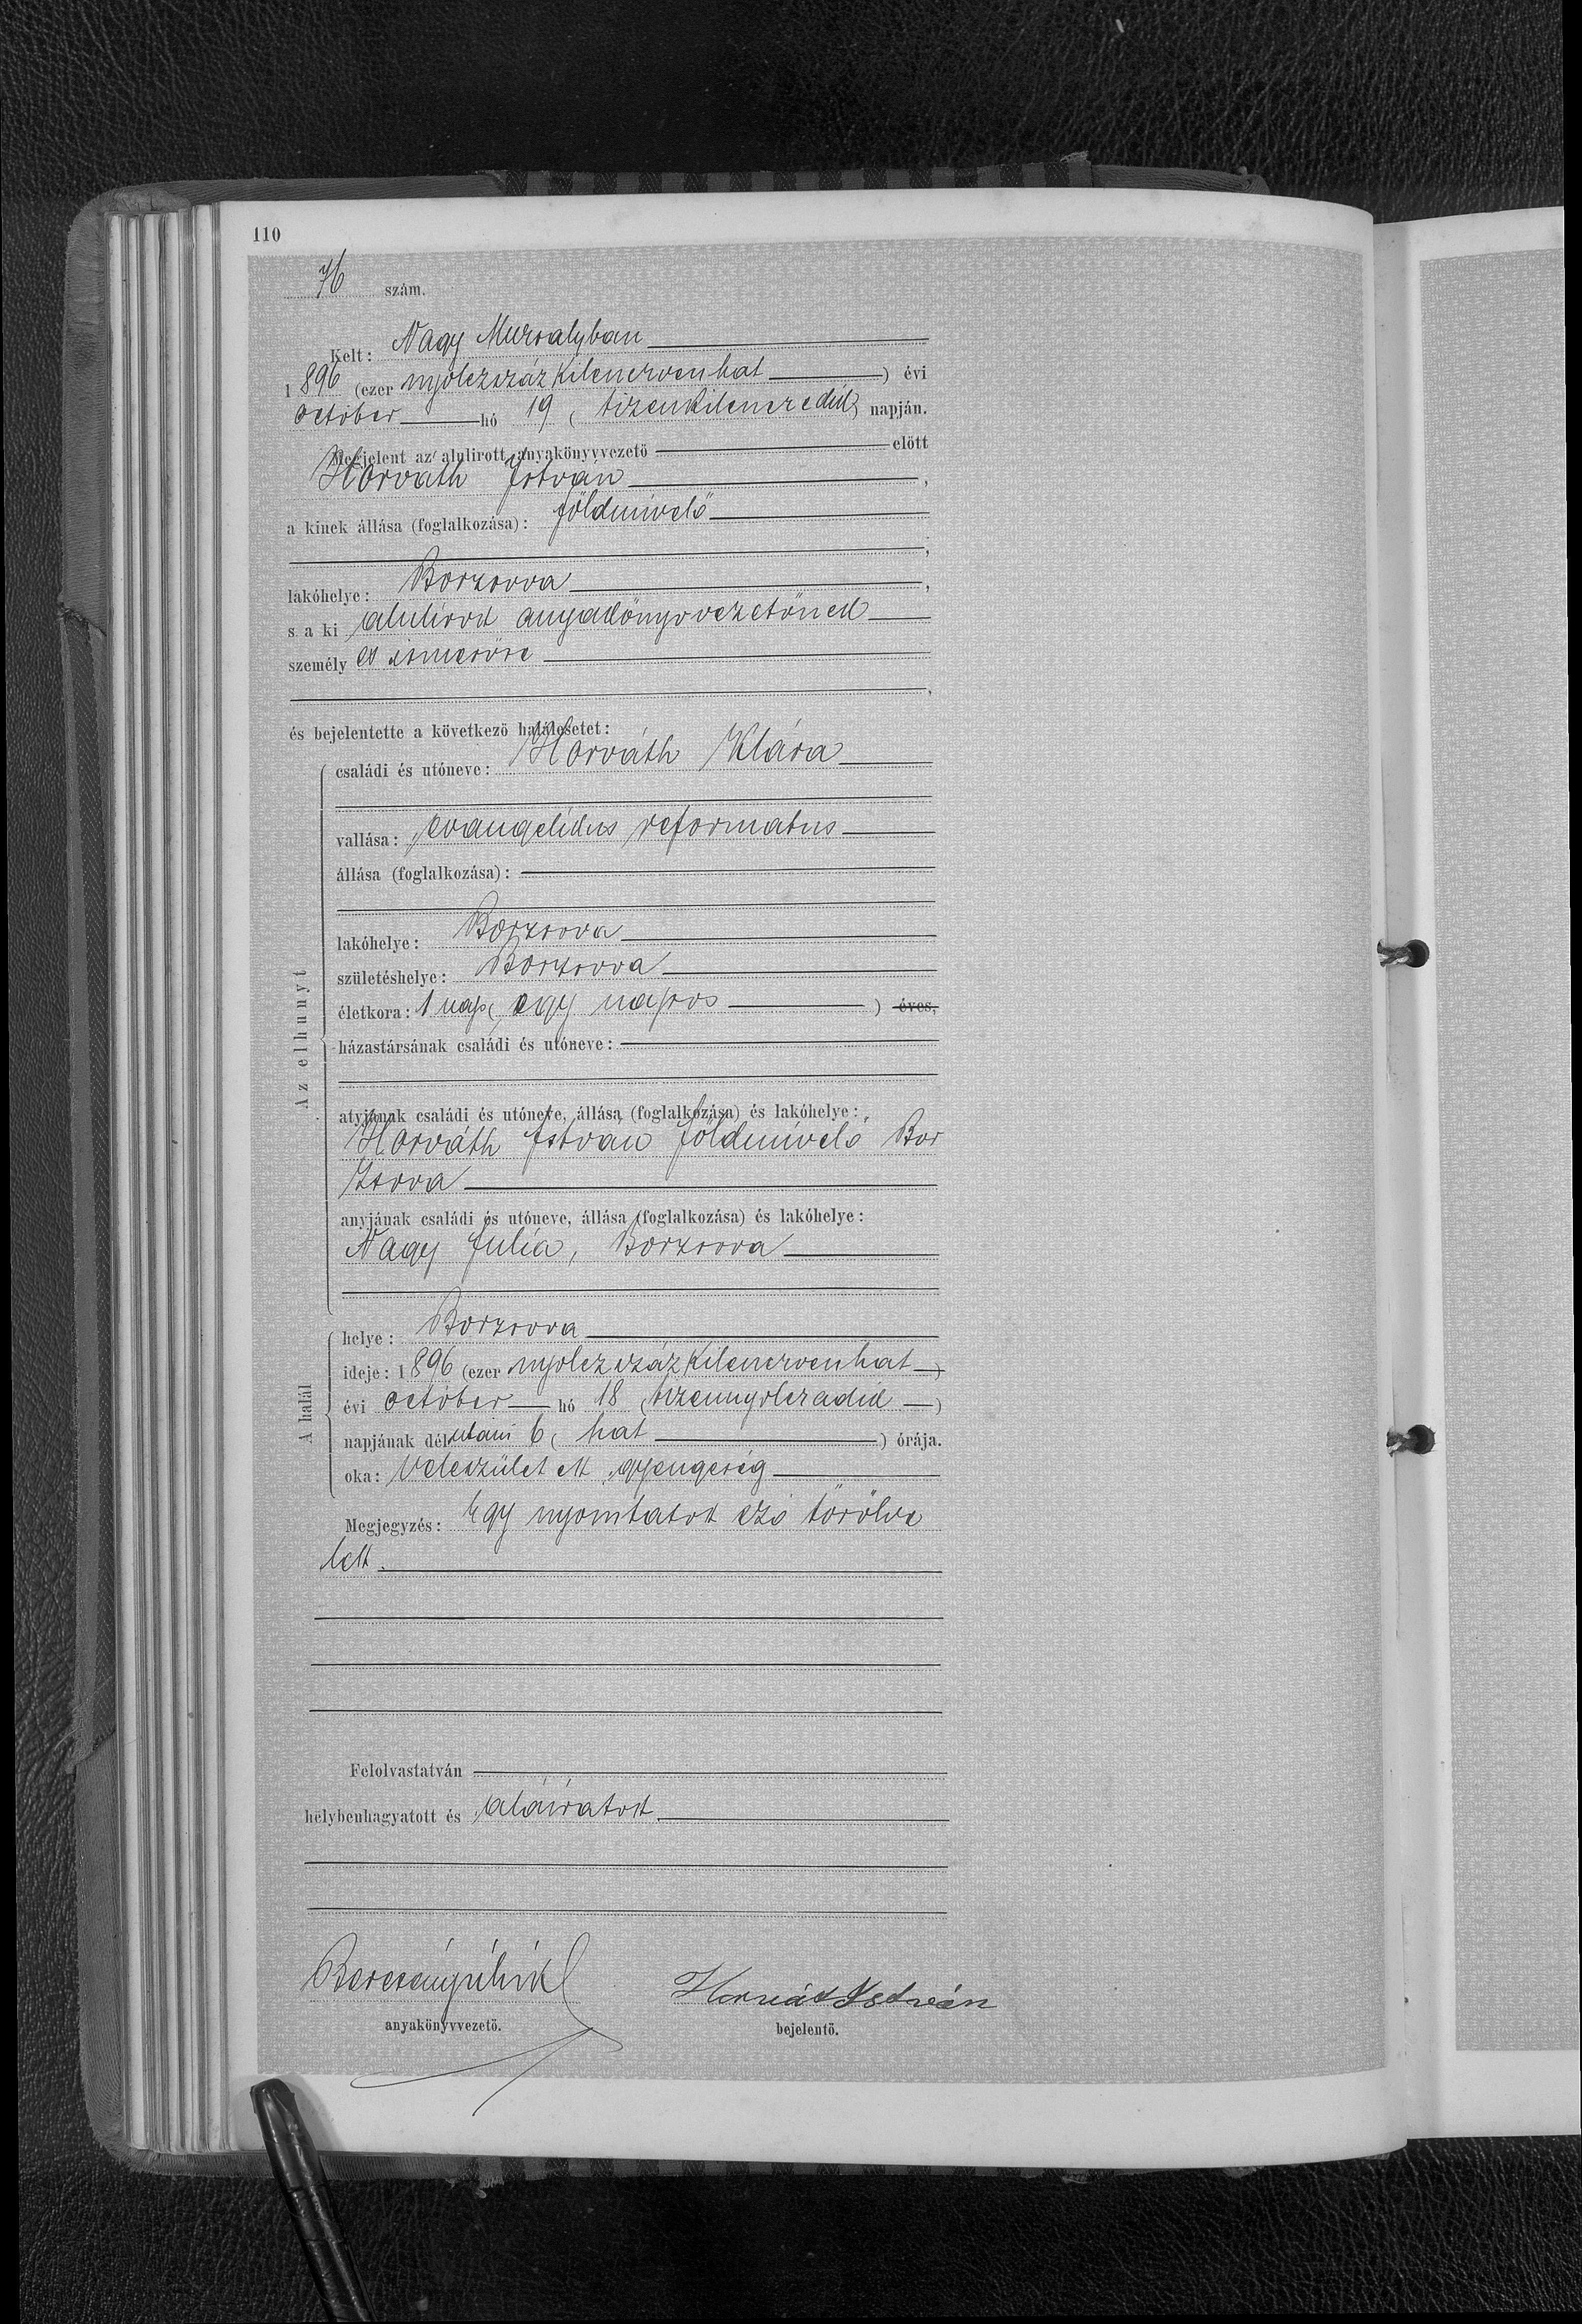 110
76 szám.
Kelt: Nagy Muzsalyban
1896 (ezer nyolczszáz kilenczvenhat) évi
october hó 19 (tizenkilenczedik) napján.
Megjelent az alulirott anyakönyvvezető előtt
Horváth István,
a kinek állása (foglalkozása): földmívelő
;
lakóhelye: Borzsova,
s a ki alulirott anyakönyvvezetőnek
személyes ismerőse
,
és bejelentette a következő halálesetet:
Az elhunyt
családi és utóneve: Horváth Klára
vallása: evangelikus reformatus
állása (foglalkozása):
lakóhelye: Borzsova
születéshelye: Borzsova
életkora: 1 nap (egy napos) éves,
házastársának családi és utóneve:
atyjának családi és utóneve, állása (foglalkozása) és lakóhelye:
Horváth István földmívelő Bor
zsova
anyjának családi és utóneve, állása (foglalkozása) és lakóhelye:
Nagy Julia, Borzsova
A halál
helye: Borzsova
ideje: 1896 (ezer nyolczszáz kilenczvenhat)
évi october hó 18 (tizennyolczadik)
napjának délutáni 6 (hat) órája.
oka: Veleszületett gyengeség
Megjegyzés: Egy nyomtatott szó törölve
lett.
Felolvastatván
helybenhagyatott és aláiratott.
Horvát István
anyakönyvvezető. bejelentő.